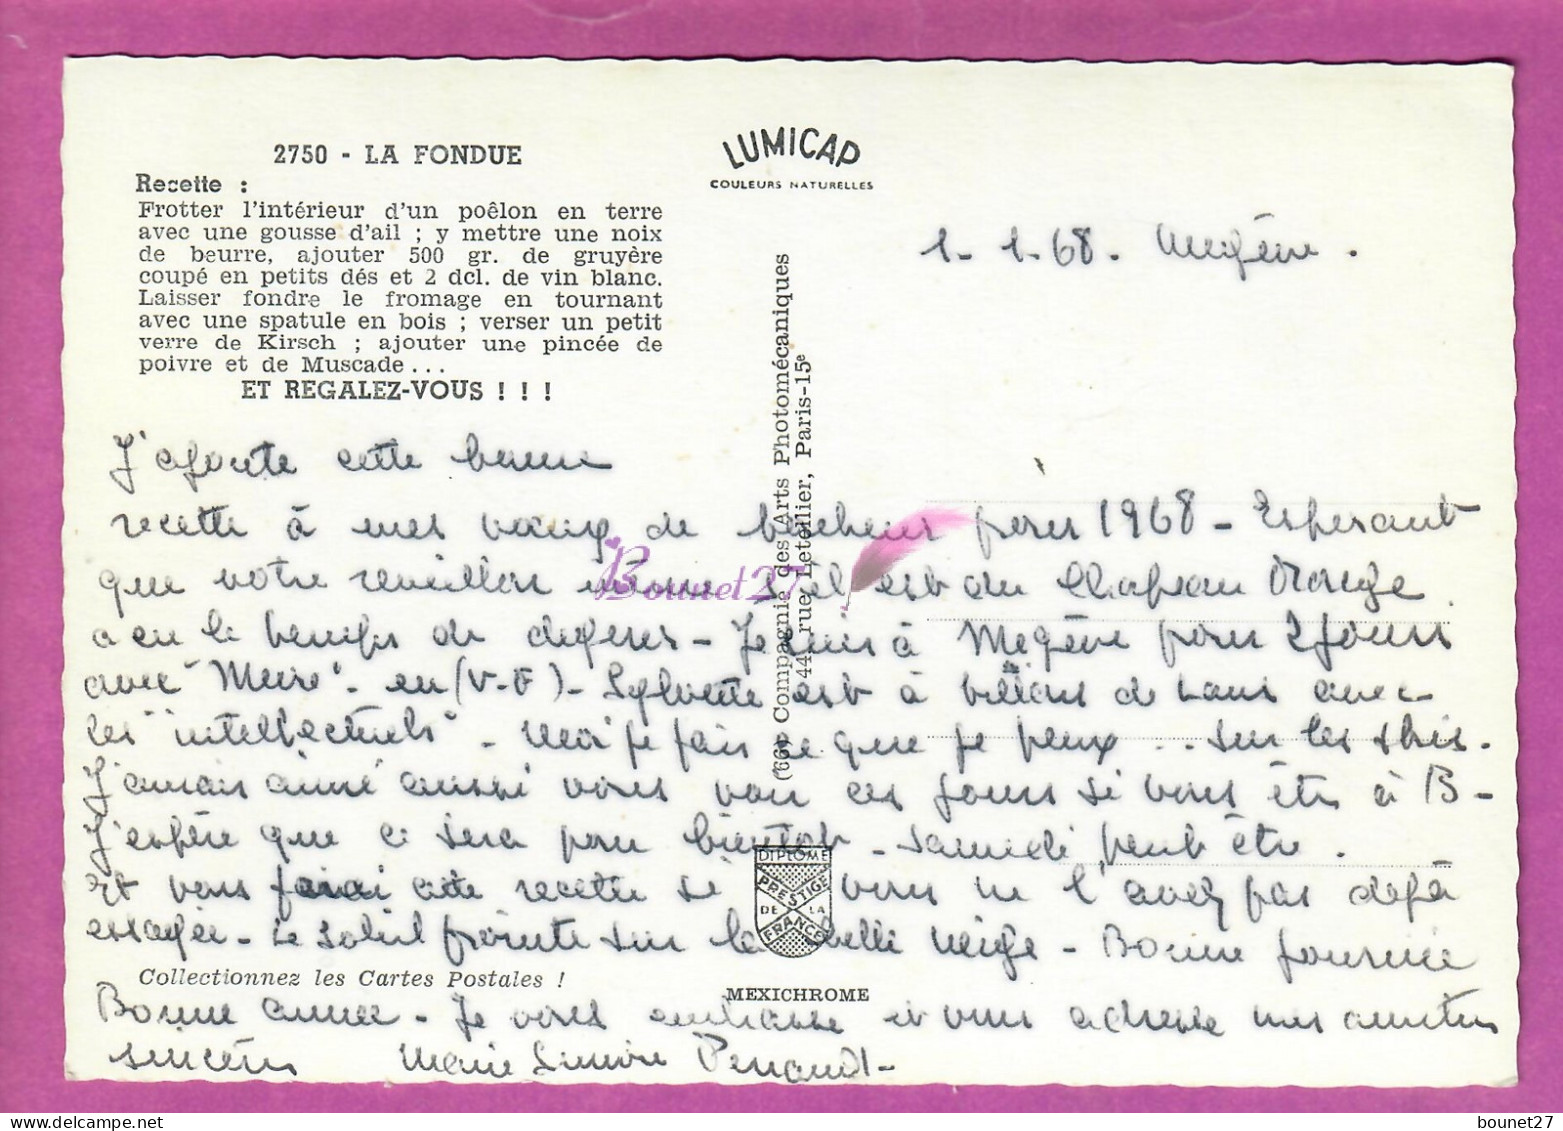 2750 - LA FONDUE
Recette :
Frotter l'intérieur d'un poêlon en terre
avec une gousse d'ail ; y mettre une noix
de beurre, ajouter 500 gr. de gruyère
coupé en petits dés et 2 dcl. de vin blanc.
Laisser fondre le fromage en tournant
avec une spatule en bois ; verser un petit
verre de Kirsch ; ajouter une pincée de
poivre et de Muscade...
ET REGALEZ-VOUS ! ! !
LUMICAP
COULEURS NATURELLES
(669) Compagnie des Arts Photomécaniques
44, rue Letellier, Paris-15e
1-1-68. Megève.
J'ajoute cette bonne
recette à mes voeux de bonheur pour 1968 - Espérant
que votre réveillon est du Chapeau Rouge
a eu le temps de digérer - Je suis à Megève pour 2 jours
avec - en (V-F) - Sylvette est à Villars de Lans avec
les "intellectuels" - Moi je fais ce que je peux... sur les skis.
J'aurais aimé aussi vous voir ces jours si vous êtes à B-
J'espère que ce sera pour bientôt - Samedi peut être.
Et vous ferai cette recette si vous ne l'avez pas déjà
essayée - Le soleil pointe sur la belle neige - Bonne journée
Bonne année - Je vous embrasse et vous adresse mes amitiés
sincères Marie
DIPLOME
PRESTIGE
DE LA
FRANCE
Collectionnez les Cartes Postales !
MEXICHROME
Bounet27
bounet27